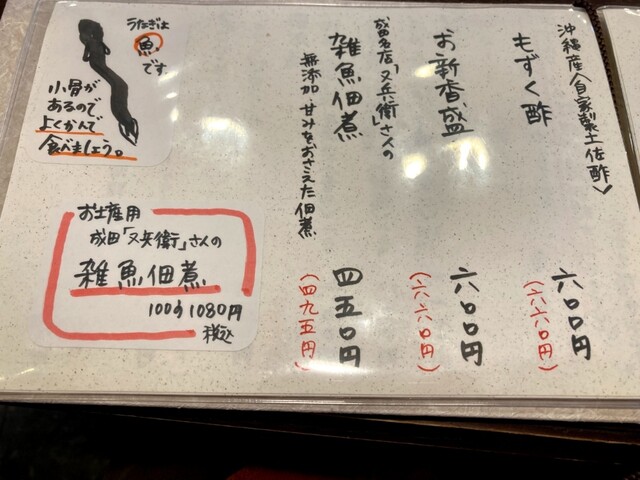 沖縄産〈自家製土佐酢〉
もずく酢
六〇〇円
(六六〇円)
お新香盛
六〇〇円
(六六〇円)
成田名店「又兵衛」さんの
雑魚佃煮
四五〇円
(四九五円)
無添加 甘みをおさえた佃煮
うなぎは
魚
です
小骨が
あるので
よくかんで
食べましょう。
お土産用
成田「又兵衛」さんの
雑魚佃煮
100g 1080円
税込